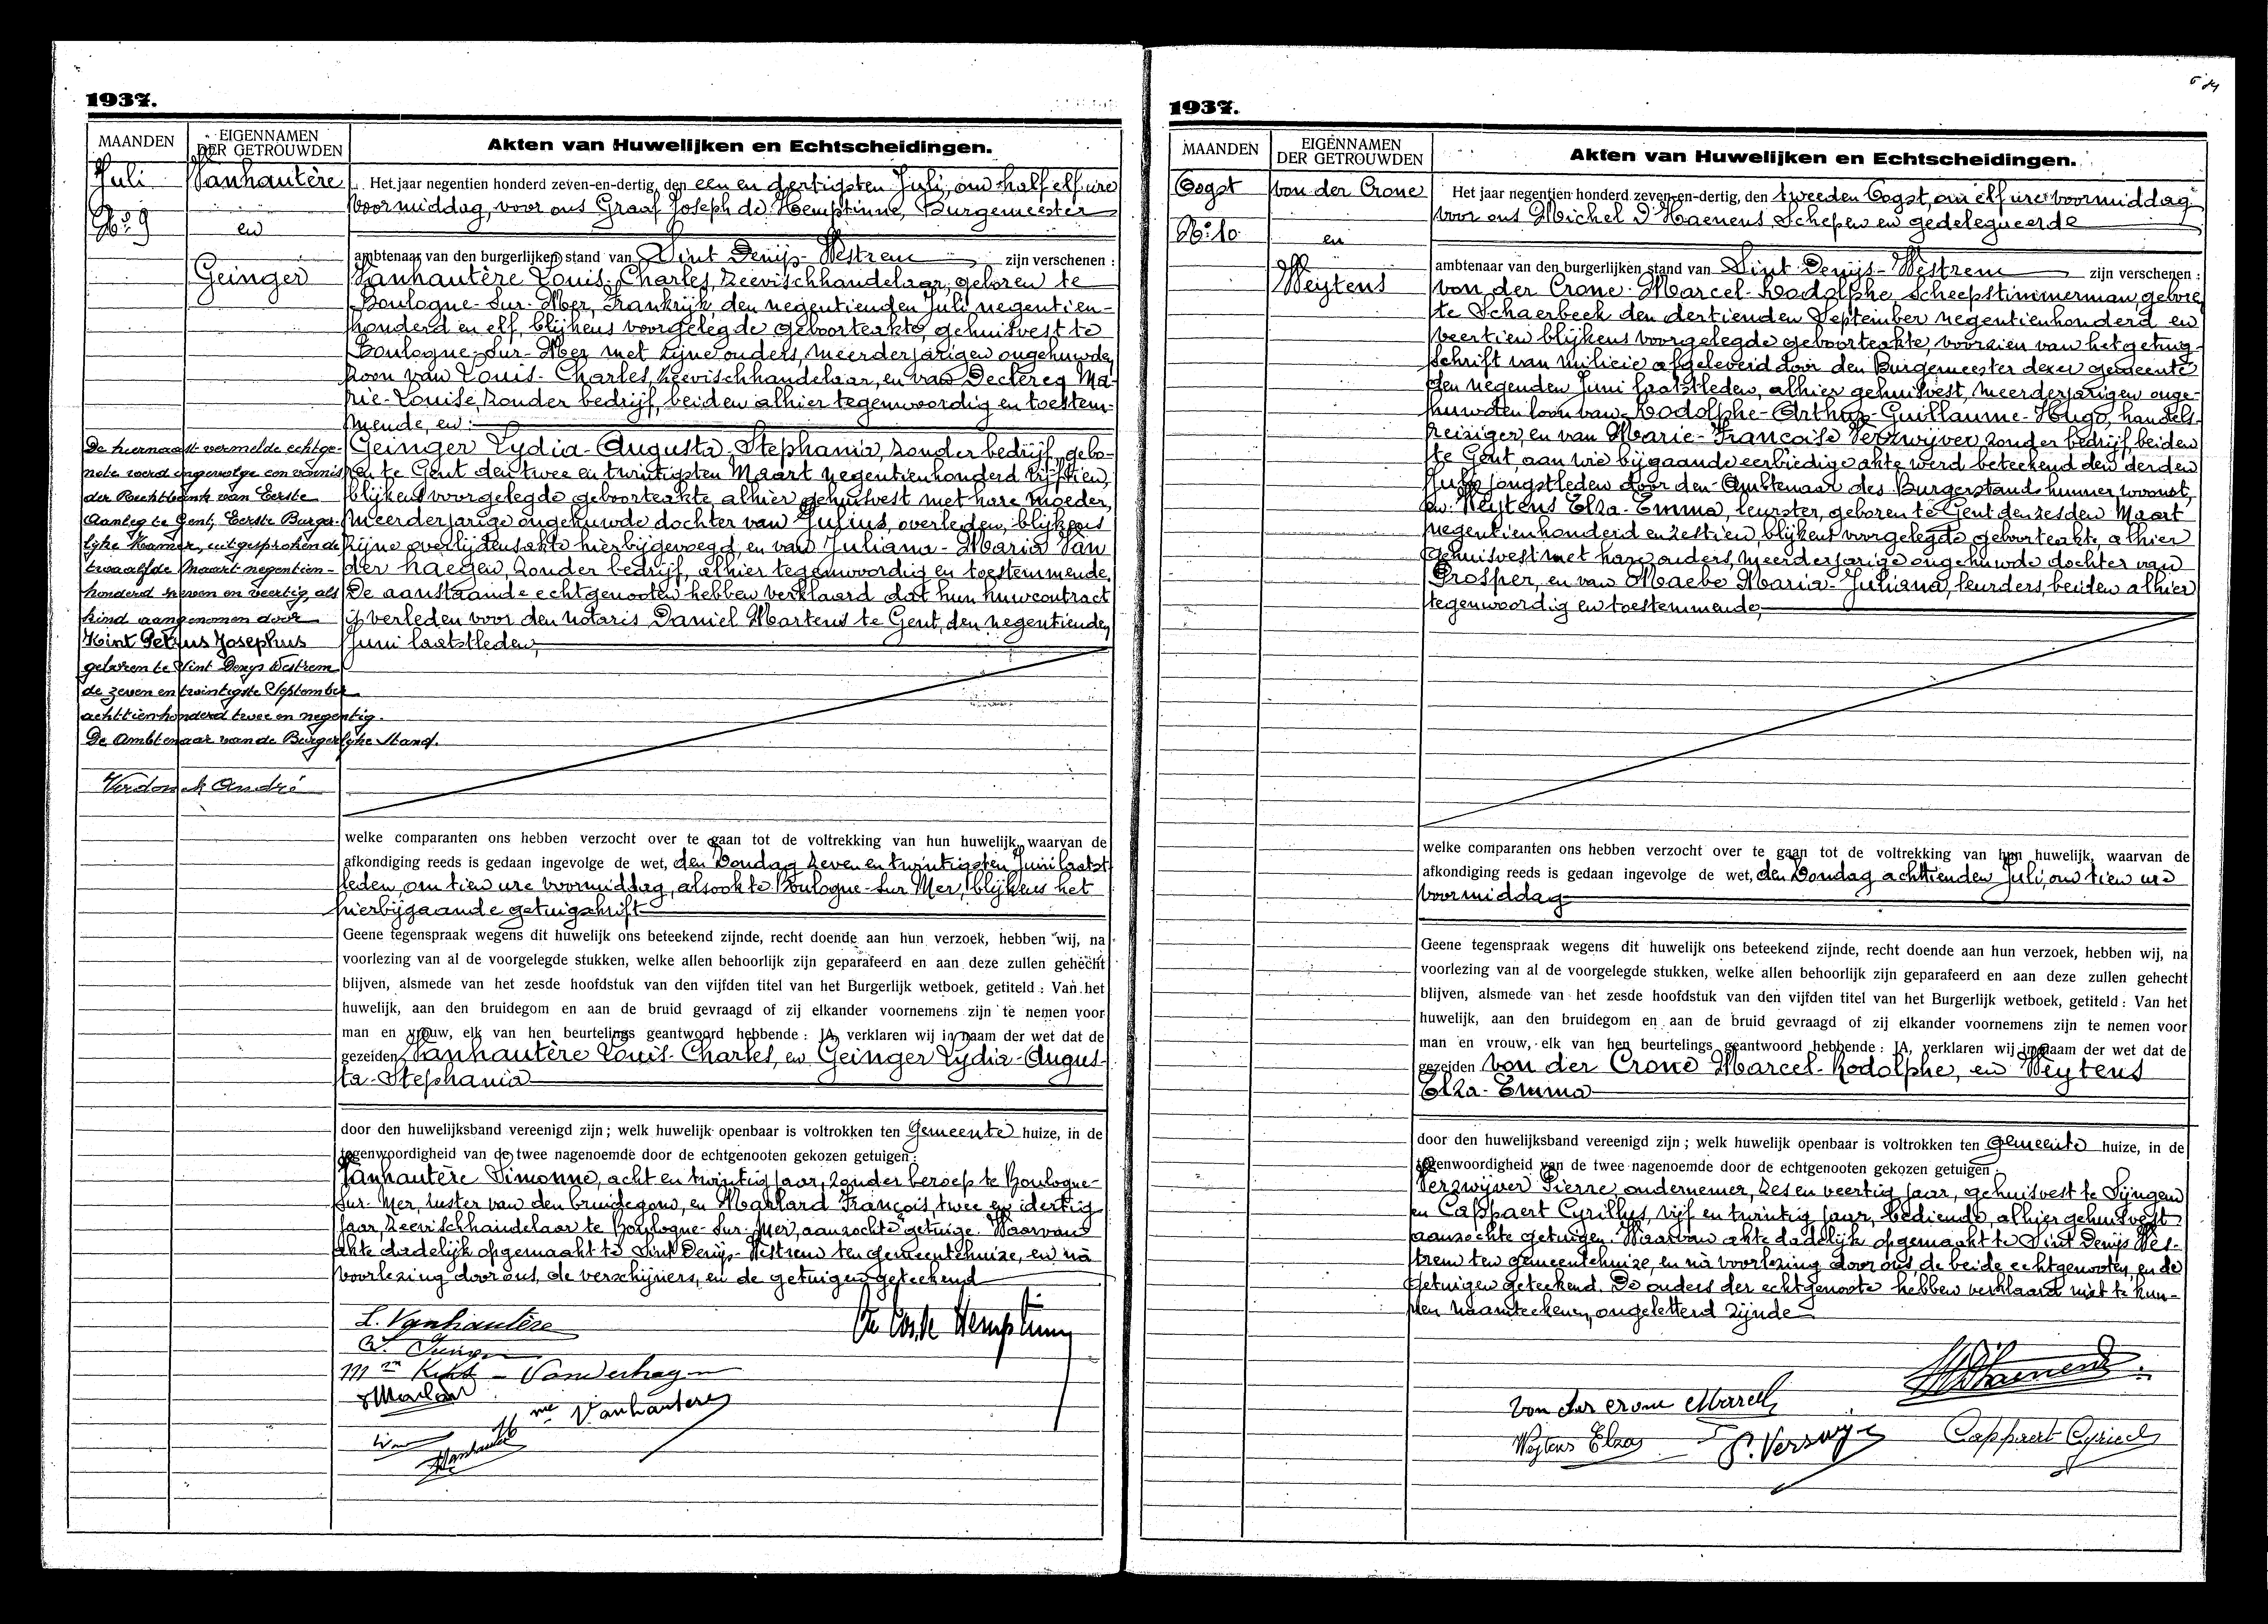 1937.
MAANDEN
EIGENNAMEN
DER GETROUWDEN
Akten van Huwelijken en Echtscheidingen.
Juli
No 9
Vanhautère
en
Geinger
Het jaar negentien honderd zeven-en-dertig, den een en dertigsten Juli, om half elf ure
voormiddag, voor ons Graaf Joseph de Hemptinne, Burgemeester
ambtenaar van den burgerlijken stand van Sint Denijs-Westrem zijn verschenen :
Vanhautère Louis-Charles, zeevischhandelaar, geboren te
Boulogne-Sur-Mer, Frankrijk, den negentienden Juli negentien-
honderd en elf, blijkens voorgelegde geboorteakte, gehuisvest te
Boulogne-Sur-Mer met zijne ouders, meerderjarigen ongehuwden
zoon van Louis-Charles, zeevischhandelaar, en van Declercq Ma-
rie-Louise, zonder bedrijf, beiden alhier tegenwoordig en toestem-
mende, en :
Geinger Lydia-Augusta-Stephania, zonder bedrijf, gebo-
ren te Gent den twee en twintigsten Maart negentienhonderd vijftien,
blijkens voorgelegde geboorteakte, alhier gehuisvest met hare moeder,
meerderjarige ongehuwde dochter van Julius, overleden, blijkens
zijne overlijdensakte hierbijgevoegd, en van Juliana-Maria Van
der haegen, zonder bedrijf, alhier tegenwoordig en toestemmende.
De aanstaande echtgenooten hebben verklaard dat hun huwcontract
is verleden voor den notaris Daniel Martens te Gent, den negentienden
Juni laatstleden,
De hiernaast vermelde echtge-
note werd ingevolge een vonnis
der Rechtbank van Eerste
Aanleg te Gent, Eerste Burger-
lyke Kamer, uitgesproken de
twaalfde Maart negentien-
honderd zeven en veertig, als
kind aangenomen door
Kint Petrus Josephus
geboren te Sint Denys Westrem
de zeven en twintigste September
achttienhonderd twee en negentig.
De Ambtenaar van de Burgerlyke Stand.
Verdonck André
welke comparanten ons hebben verzocht over te gaan tot de voltrekking van hun huwelijk, waarvan de
afkondiging reeds is gedaan ingevolge de wet, den Zondag zeven en twintigsten Juni laatst
leden, om tien ure voormiddag, alsook te Boulogne-Sur Mer, blijkens het
hierbijgaande getuigschrift
Geene tegenspraak wegens dit huwelijk ons beteekend zijnde, recht doende aan hun verzoek, hebben wij, na
voorlezing van al de voorgelegde stukken, welke allen behoorlijk zijn geparafeerd en aan deze zullen gehecht
blijven, alsmede van het zesde hoofdstuk van den vijfden titel van het Burgerlijk wetboek, getiteld : Van het
huwelijk, aan den bruidegom en aan de bruid gevraagd of zij elkander voornemens zijn te nemen voor
man en vrouw, elk van hen beurtelings geantwoord hebbende : JA, verklaren wij in naam der wet dat de
gezeiden Vanhautère Louis-Charles, en Geinger Lydia-Augus-
ta-Stephania
door den huwelijksband vereenigd zijn ; welk huwelijk openbaar is voltrokken ten Gemeente huize, in de
tegenwoordigheid van de twee nagenoemde door de echtgenooten gekozen getuigen :
Vanhautère Simonne, acht en twintig jaar, zonder beroep te Boulogne-
Sur-Mer, zuster van den bruidegom, en Maillard François, twee en dertig
jaar, zeevischhandelaar te Boulogne-Sur-Mer, aanzochte getuige. Waarvan
akte dadelijk opgemaakt te Sint Denijs-Westrem ten gemeentehuize, en na
voorlezing door ons, de verschijners, en de getuigen geteekend
L. Vanhautère
Vanderhagen
Vanhautere
1937.
MAANDEN
EIGENNAMEN
DER GETROUWDEN
Akten van Huwelijken en Echtscheidingen.
Oogst
No 10
von der Crone
en
Weytens
Het jaar negentien honderd zeven-en-dertig, den tweeden Oogst, om elf ure voormiddag
voor ons Michel D'Haenens Schepen en gedelegueerde
ambtenaar van den burgerlijken stand van Sint-Denijs-Westrem zijn verschenen :
von der Crone Marcel-Rodolphe, Scheepstimmerman, geboren
te Schaerbeek den dertienden September negentienhonderd en
veertien blijkens voorgelegde geboorteakte, voorzien van het getuig-
schrift van milicie afgeleverd door den Burgemeester dezer gemeente
den negenden Juni laatstleden, alhier gehuisvest, meerderjarigen onge-
huwden zoon van Rodolphe-Arthur-Guillaume-Hugo, handels-
reiziger, en van Marie-Francoise Verzwijver, zonder bedrijf, beiden
te Gent, aan wie bijgaande eerbiedige akte werd beteekend den derden
Juli jongstleden door den Ambtenaar des Burgerstands hunner woonst,
en Weytens Elza-Emma, leurster, geboren te Gent den zesden Maart
negentienhonderd en zestien, blijkens voorgelegde geboorteakte, alhier
gehuisvest met hare ouders, meerderjarige ongehuwde dochter van
Prosper, en van Maebe Maria-Juliana, leurders, beiden alhier
tegenwoordig en toestemmende,
welke comparanten ons hebben verzocht over te gaan tot de voltrekking van hun huwelijk, waarvan de
afkondiging reeds is gedaan ingevolge de wet, den Zondag achttienden Juli, om tien ure
voormiddag
Geene tegenspraak wegens dit huwelijk ons beteekend zijnde, recht doende aan hun verzoek, hebben wij, na
voorlezing van al de voorgelegde stukken, welke allen behoorlijk zijn geparafeerd en aan deze zullen gehecht
blijven, alsmede van het zesde hoofdstuk van den vijfden titel van het Burgerlijk wetboek, getiteld : Van het
huwelijk, aan den bruidegom en aan de bruid gevraagd of zij elkander voornemens zijn te nemen voor
man en vrouw, elk van hen beurtelings geantwoord hebbende : JA, verklaren wij in naam der wet dat de
gezeiden von der Crone Marcel-Rodolphe, en Weytens
Elza-Emma
door den huwelijksband vereenigd zijn ; welk huwelijk openbaar is voltrokken ten gemeente huize, in de
tegenwoordigheid van de twee nagenoemde door de echtgenooten gekozen getuigen :
Verzwijver Pierre ondernemer, zes en veertig jaar, gehuisvest te Sijngem
en Cappaert Cyrillus, vijf en twintig jaar, bediende, alhier gehuisvest
aanzochte getuigen. Waarvan akte dadelijk opgemaakt te Sint Denijs Wes-
trem ten gemeentehuize, en na voorlezing door ons, de beide echtgenooten, en de
getuigen geteekend. De ouders der echtgenoote hebben verklaard niet te kun-
nen naamteekenen, ongeletterd zijnde
von der crone Marcel
Weytens Elza
Cappaert Cyriel